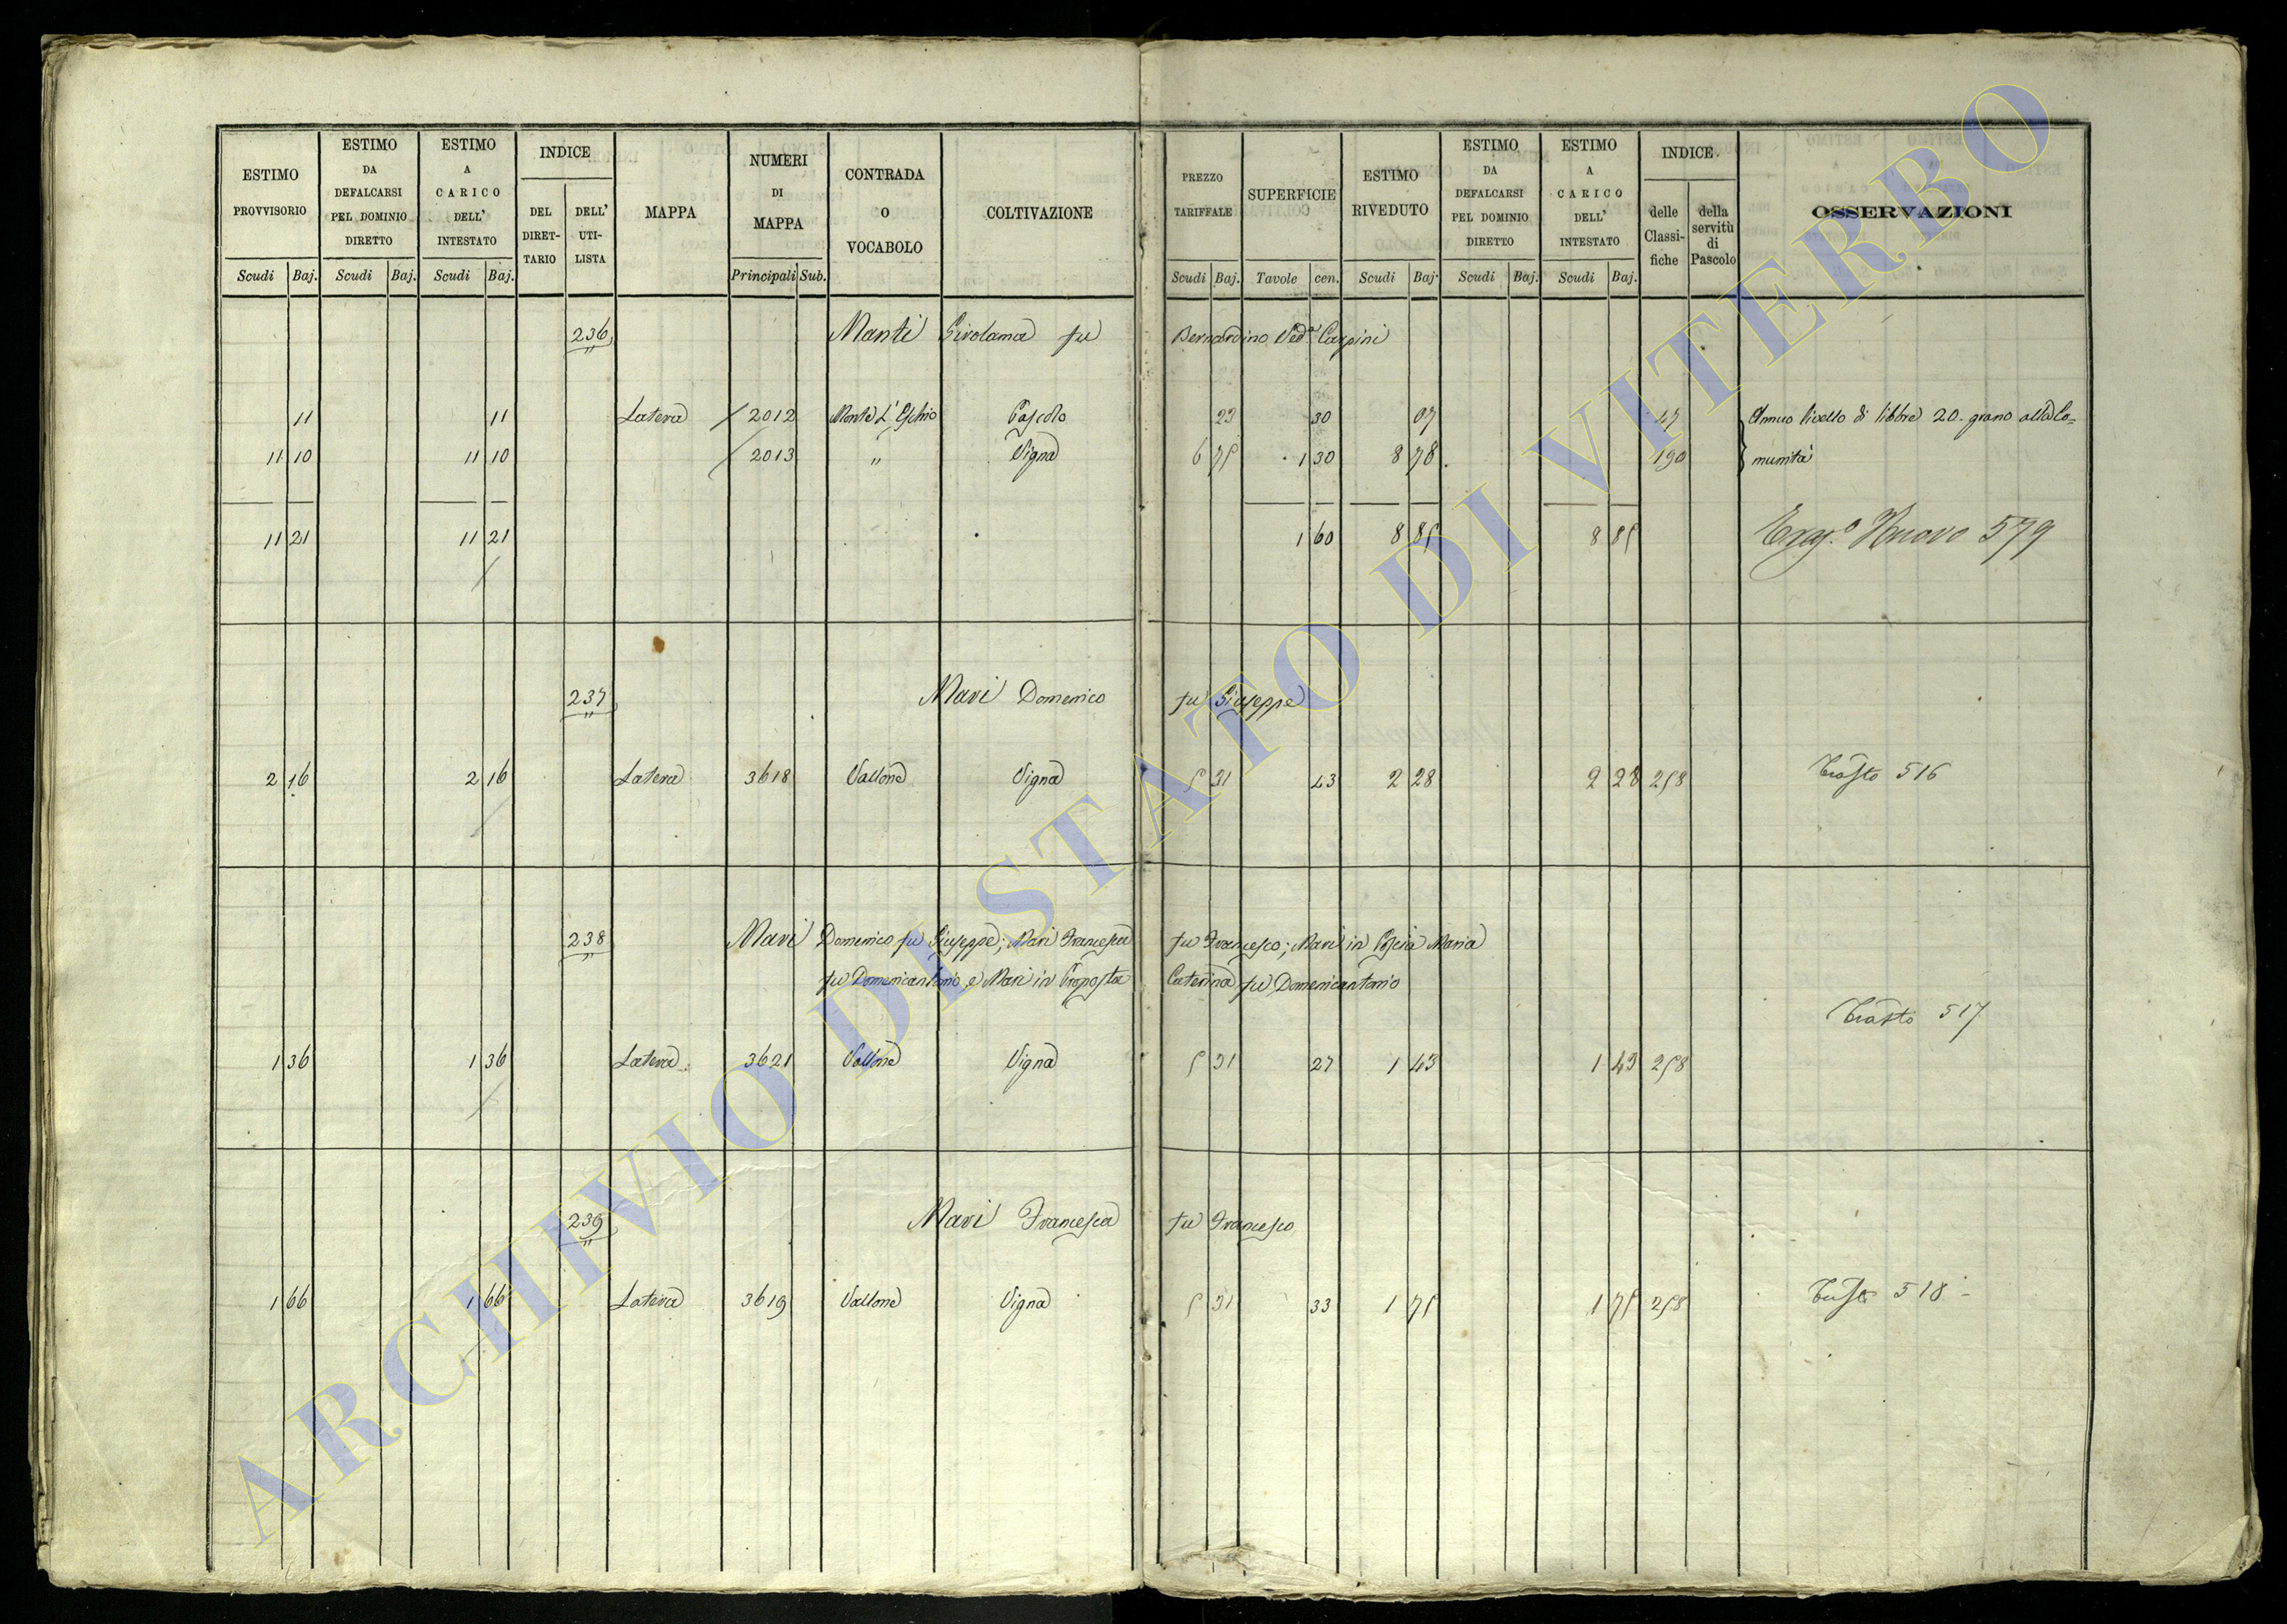 ESTIMO PROVVISORIO
ESTIMO DA DEFALCARSI PEL DOMINIO DIRETTO
ESTIMO A CARICO DELL' INTESTATO
INDICE
DEL DIRET-TARIO
DELL' UTI-LISTA
MAPPA
NUMERI DI MAPPA
CONTRADA O VOCABOLO
COLTIVAZIONE
PREZZO TARIFFALE
SUPERFICIE
ESTIMO RIVEDUTO
ESTIMO DA DEFALCARSI PEL DOMINIO DIRETTO
ESTIMO A CARICO DELL' INTESTATO
INDICE
delle Classi-fiche
della servitù di Pascolo
OSSERVAZIONI
Scudi Baj. Scudi Baj. Scudi Baj. Principali Sub. Scudi Baj. Tavole cen. Scudi Baj. Scudi Baj. Scudi Baj.
236 Manti Girolama fu Bernardino Ved.a Carpini
11 11 Latera 2012 Monte Pascolo 23 30 07 47 Annuo livello di libbre 20 grano alla Co=
11 10 11 10 2013 " Vigna 6 75 1 30 8 78 190 munità
11 21 11 21 1 60 8 85 8 85 Nuovo 579
237 Mari Domenico fu Giuseppe
2 16 2 16 Latera 3618 Vallone Vigna 5 31 43 2 28 2 28 258 516
238 Mari Domenico fu Giuseppe; Mari Francesca fu Francesco; Mari in Poscia Maria
fu Domenicantonio e Mari in Proposta Caterina fu Domenicantonio
517
1 36 1 36 Latera 3621 Vallone Vigna 5 31 27 1 43 1 43 258
239 Mari Francesca fu Francesco
1 66 1 66 Latera 3619 Vallone Vigna 5 31 33 1 75 1 75 258 518
ARCHIVIO DI STATO DI VITERBO